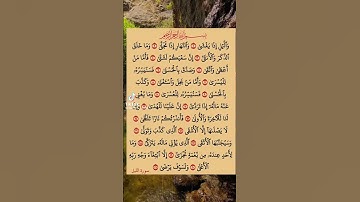 بِسْمِ اللَّهِ الرَّحْمَٰنِ الرَّحِيمِ
وَاللَّيْلِ إِذَا يَغْشَىٰ وَالنَّهَارِ إِذَا تَجَلَّىٰ وَمَا خَلَقَ
الذَّكَرَ وَالْأُنثَىٰ إِنَّ سَعْيَكُمْ لَشَتَّىٰ فَأَمَّا مَنْ
أَعْطَىٰ وَاتَّقَىٰ وَصَدَّقَ بِالْحُسْنَىٰ فَسَنُيَسِّرُهُ
لِلْيُسْرَىٰ وَأَمَّا مَن بَخِلَ وَاسْتَغْنَىٰ وَكَذَّبَ
بِالْحُسْنَىٰ فَسَنُيَسِّرُهُ لِلْعُسْرَىٰ وَمَا يُغْنِي
عَنْهُ مَالُهُ إِذَا تَرَدَّىٰ إِنَّ عَلَيْنَا لَلْهُدَىٰ وَإِنَّ
لَنَا لَلْآخِرَةَ وَالْأُولَىٰ فَأَنذَرْتُكُمْ نَارًا تَلَظَّىٰ
لَا يَصْلَاهَا إِلَّا الْأَشْقَى الَّذِي كَذَّبَ وَتَوَلَّىٰ
وَسَيُجَنَّبُهَا الْأَتْقَى الَّذِي يُؤْتِي مَالَهُ يَتَزَكَّىٰ وَمَا
لِأَحَدٍ عِندَهُ مِن نِّعْمَةٍ تُجْزَىٰ إِلَّا ابْتِغَاءَ وَجْهِ رَبِّهِ
الْأَعْلَىٰ وَلَسَوْفَ يَرْضَىٰ
سورة الليل